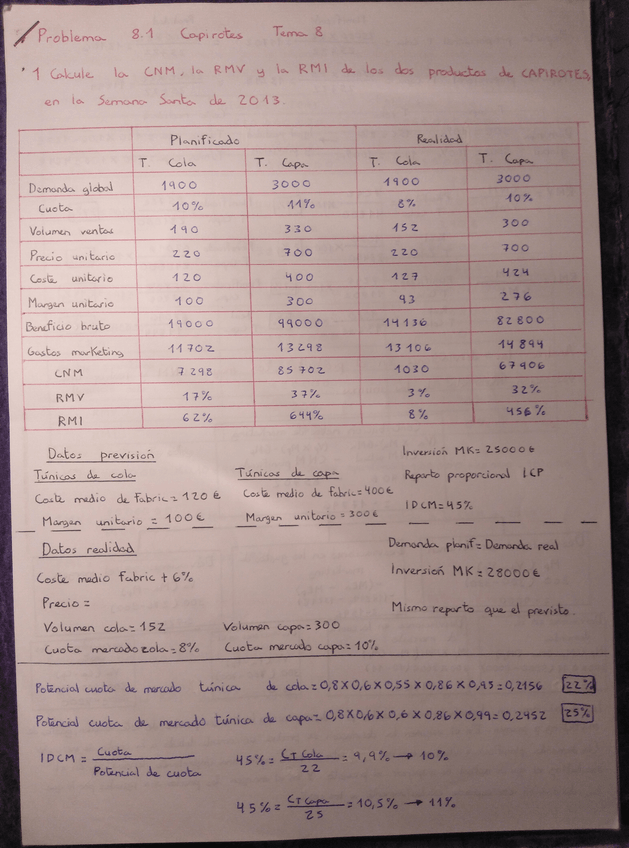 Problema 8.1 Capirotes Tema 8
1 Calcule la CNM, la RMV y la RMI de los dos productos de CAPIROTES,
en la Semana Santa de 2013.
Planificado Realidad
T. Cola T. Capa T. Cola T. Capa
Demanda global 1900 3000 1900 3000
Cuota 10% 11% 8% 10%
Volumen ventas 190 330 152 300
Precio unitario 220 700 220 700
Coste unitario 120 400 127 424
Margen unitario 100 300 93 276
Beneficio bruto 19000 99000 14136 82800
Gastos marketing 11702 13298 13106 14894
CNM 7298 85702 1030 67906
RMV 17% 37% 3% 32%
RMI 62% 644% 8% 456%
Datos previsión Inversión MK = 25000€
Túnicas de cola Túnicas de capa Reparto proporcional ICP
Coste medio de fabric = 120 € Coste medio de fabric = 400€ IDCM = 45%
Margen unitario = 100€ Margen unitario = 300€
Datos realidad Demanda planif = Demanda real
Coste medio fabric + 6% Inversión MK = 28000€
Precio =
Mismo reparto que el previsto.
Volumen cola = 152 Volumen capa = 300
Cuota mercado cola = 8% Cuota mercado capa = 10%
Potencial cuota de mercado túnica de cola = 0,8 X 0,6 X 0,55 X 0,86 X 0,95 = 0,2156 22%
Potencial cuota de mercado túnica de capa = 0,8 X 0,6 X 0,6 X 0,86 X 0,99 = 0,2452 25%
IDCM = Cuota / Potencial de cuota 45% = CT Cola / 22 = 9,9% → 10%
45% = CT Capa / 25 = 10,5% → 11%